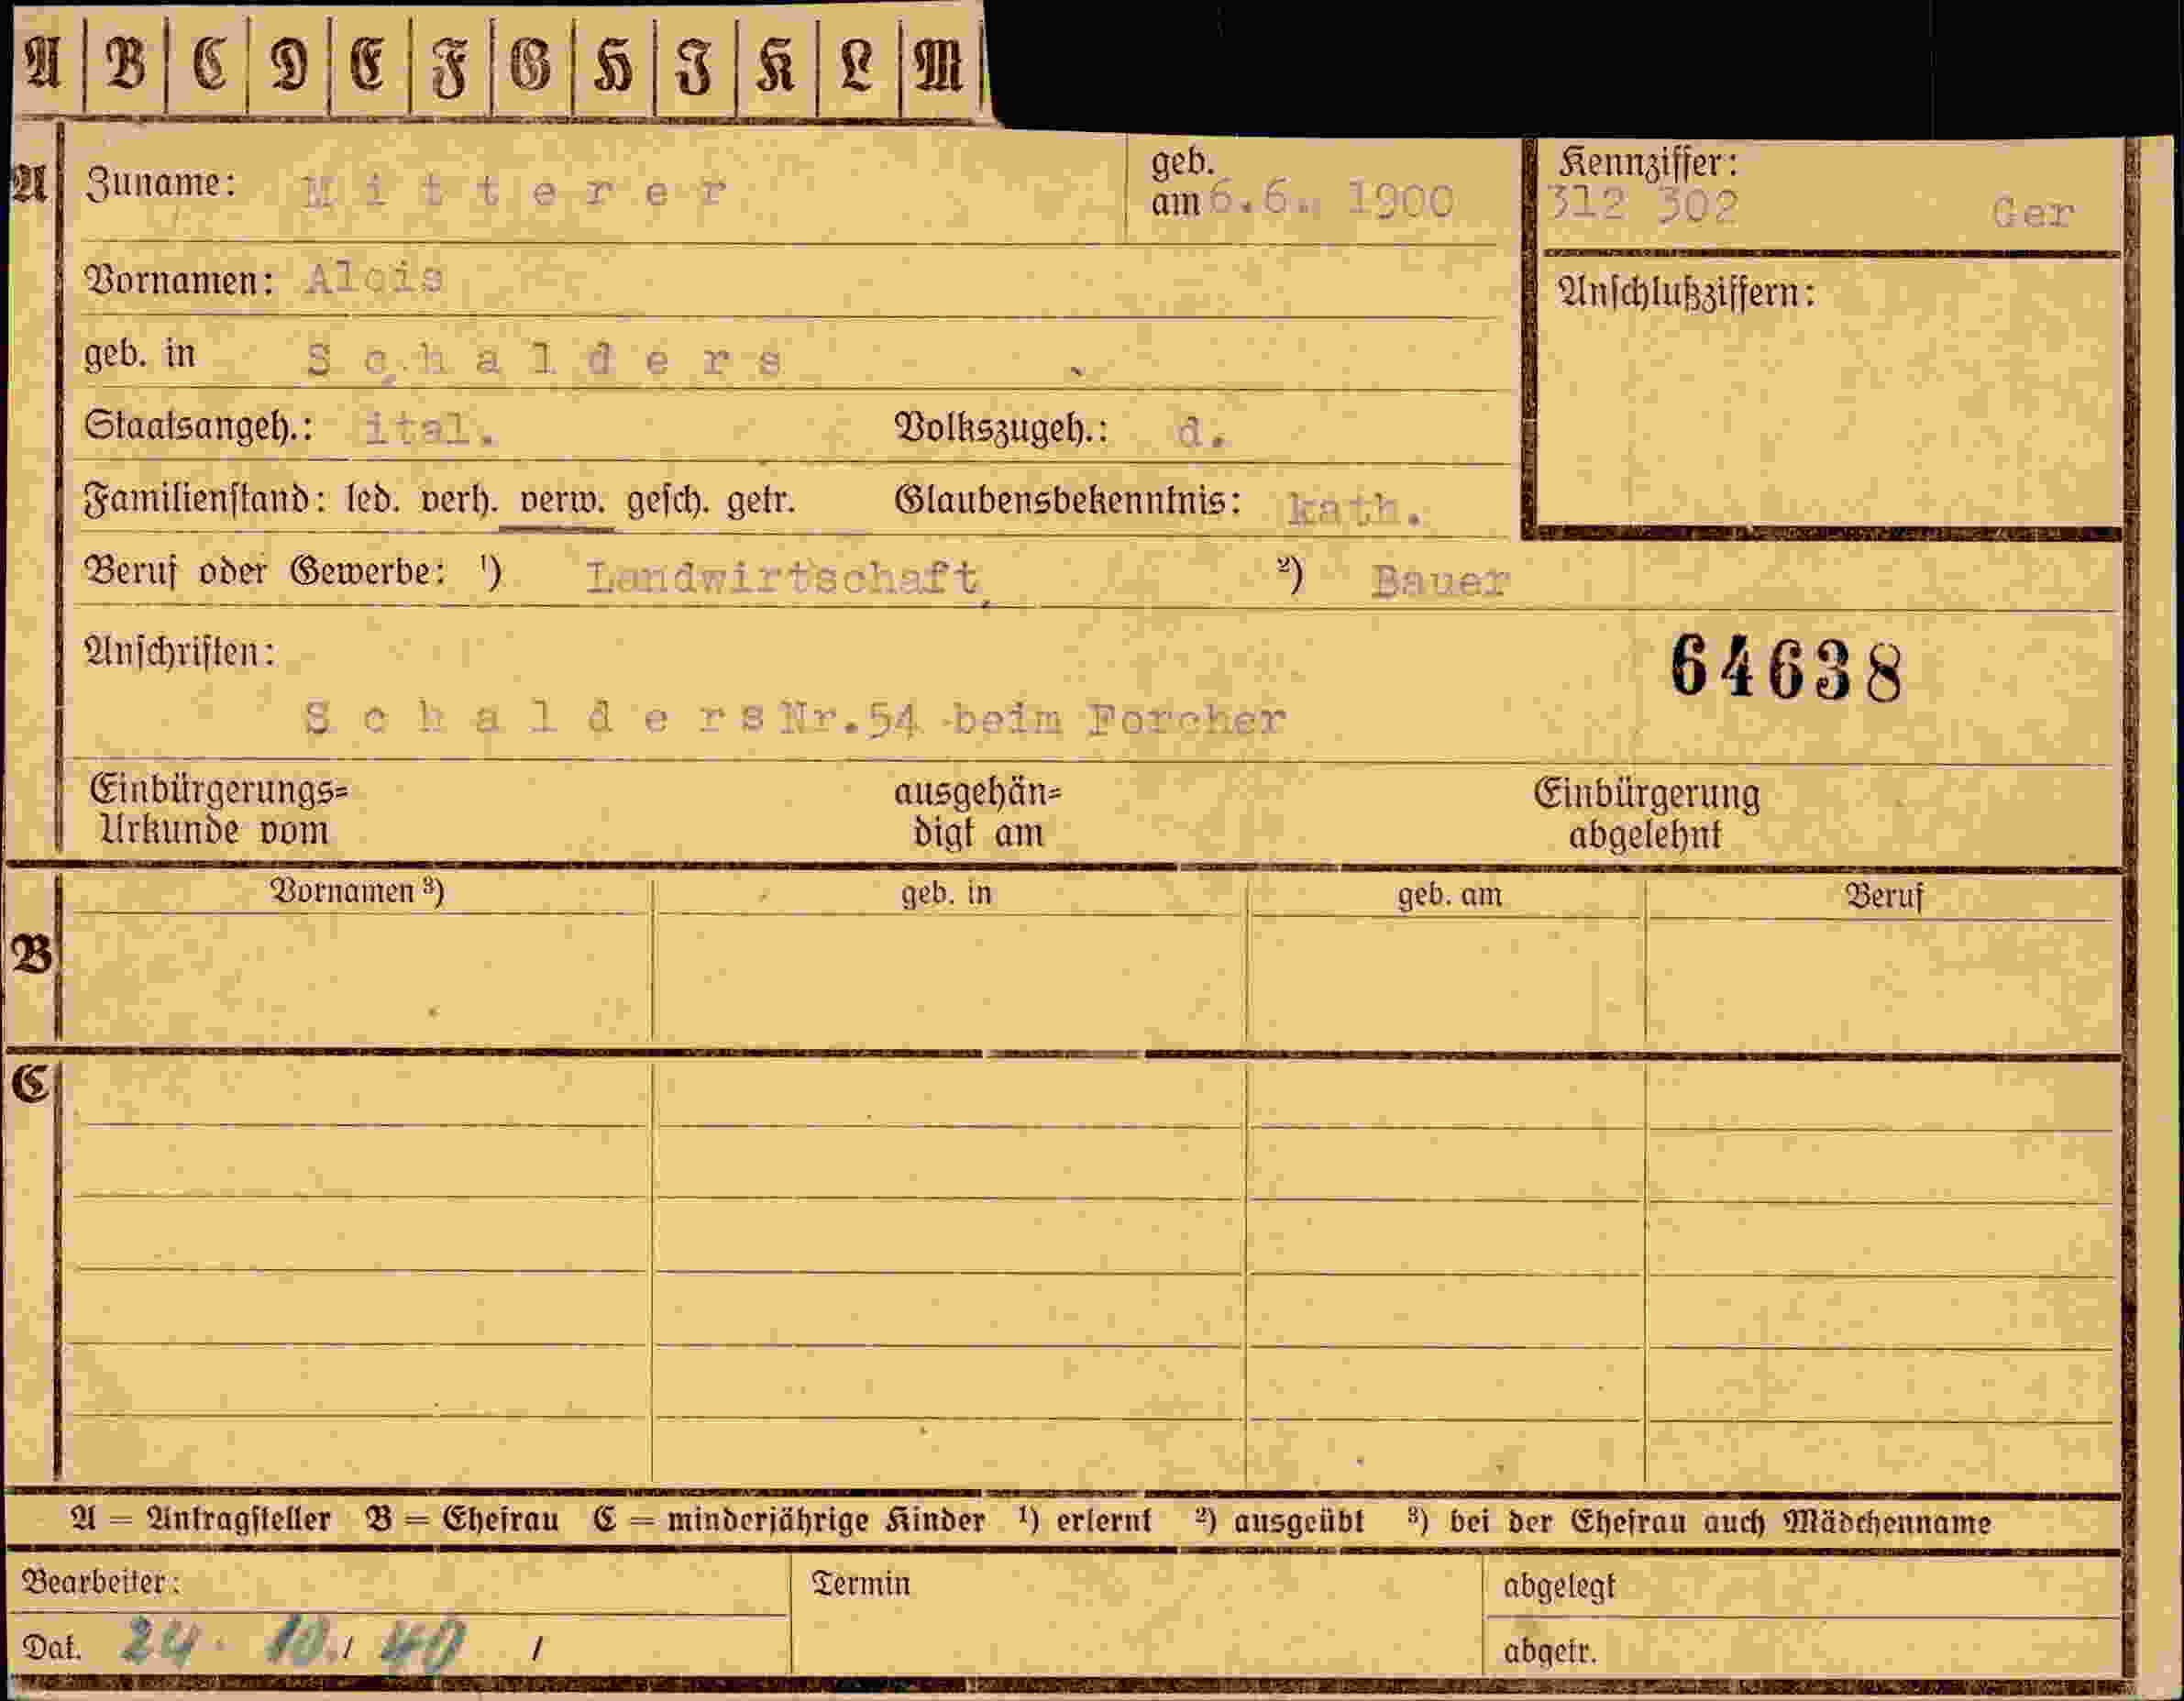 A B C D E F G H I K L M
A Zuname: Mitterer geb. am 6.6. 1900 Kennziffer: 312 302 Ger
Vornamen: Alois Anschlußziffern:
geb. in Schalders
Staatsangeh.: ital. Volkszugeh.: d.
Familienstand: led. verh. verw. gesch. getr. Glaubensbekenntnis: kath.
Beruf oder Gewerbe: ¹) Landwirtschaft ²) Bauer
Anschriften: 64638
Schalders Nr.54 beim Forcher
Einbürgerungs= ausgehän= Einbürgerung
Urkunde vom digt am abgelehnt
Vornamen ³) geb. in geb. am Beruf
B
C
A = Antragsteller B = Ehefrau C = minderjährige Kinder ¹) erlernt ²) ausgeübt ³) bei der Ehefrau auch Mädchenname
Bearbeiter: Termin abgelegt
Dat. 24. 10./ 40 / abgetr.